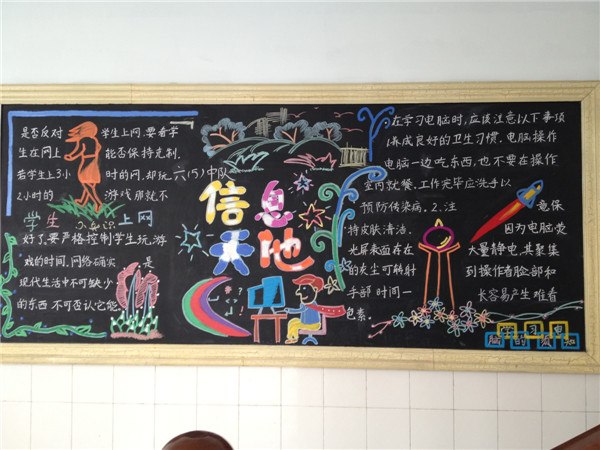 是否反对 学生上网,要看学
生在网上 能否保持克制.
若学生上3小 时的网,却玩
2小时的 游戏那就不
学生 上网
好了.要严格控制学生玩,游
戏的时间.网络确实 是
现代生活中不可缺少
的东西 不可否认它能
六(5)中队
信息
天地
在学习电脑时,应该注意以下事项
1养成良好的卫生习惯,电脑操作
电脑一边吃东西,也不要在操作
室内就餐,工作完毕应洗手以
预防传染病.2.注 意保
持皮肤清洁. 因为电脑荧
光屏表面存在 大量静电,其聚集
的灰尘可转射 到操作者脸部和
手部 时间一 长容易产生难看
包素.
学习电
脑的须知